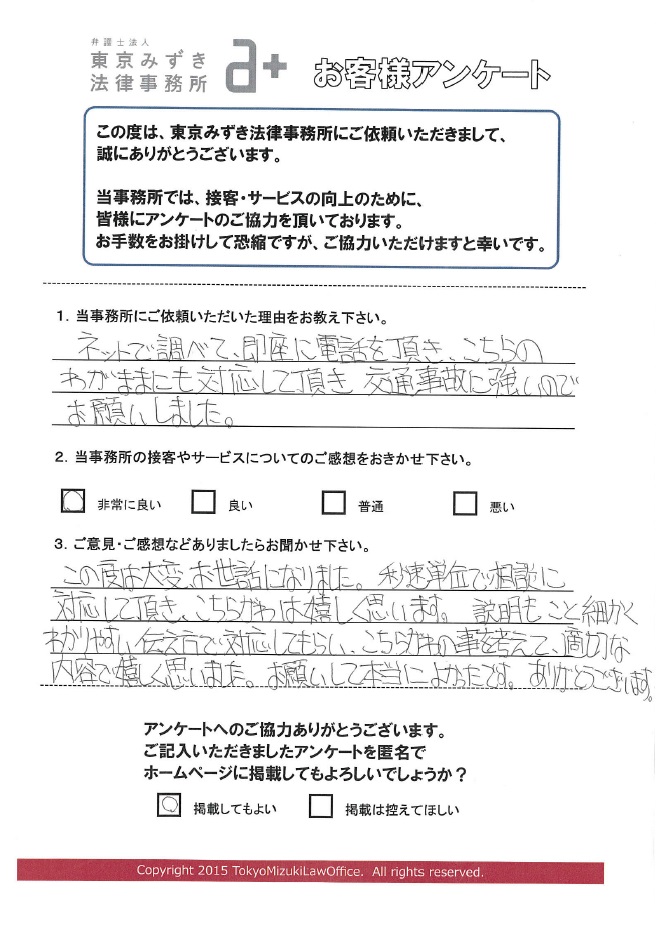 弁護士法人
東京みずき
法律事務所
a+
お客様アンケート
この度は、東京みずき法律事務所にご依頼いただきまして、
誠にありがとうございます。
当事務所では、接客・サービスの向上のために、
皆様にアンケートのご協力を頂いております。
お手数をお掛けして恐縮ですが、ご協力いただけますと幸いです。
1. 当事務所にご依頼いただいた理由をお教え下さい。
ネットで調べて、即座に電話を頂き、こちらの
わがままにも対応して頂き 交通事故に強いので
お願いしました。
2. 当事務所の接客やサービスについてのご感想をおきかせ下さい。
非常に良い 良い 普通 悪い
3. ご意見・ご感想などありましたらお聞かせ下さい。
この度は大変、お世話になりました。 秒速単位で相談に
対応して頂き、こちらがわは嬉しく思います。 説明もこと細かく
わかりやすい伝え方で対応してもらい、こちらがわの事を考えて、適切な
内容で嬉しく思いました。お願いして本当によかったです。ありがとうございます。
アンケートへのご協力ありがとうございます。
ご記入いただきましたアンケートを匿名で
ホームページに掲載してもよろしいでしょうか？
掲載してもよい 掲載は控えてほしい
Copyright 2015 TokyoMizukiLawOffice. All rights reserved.